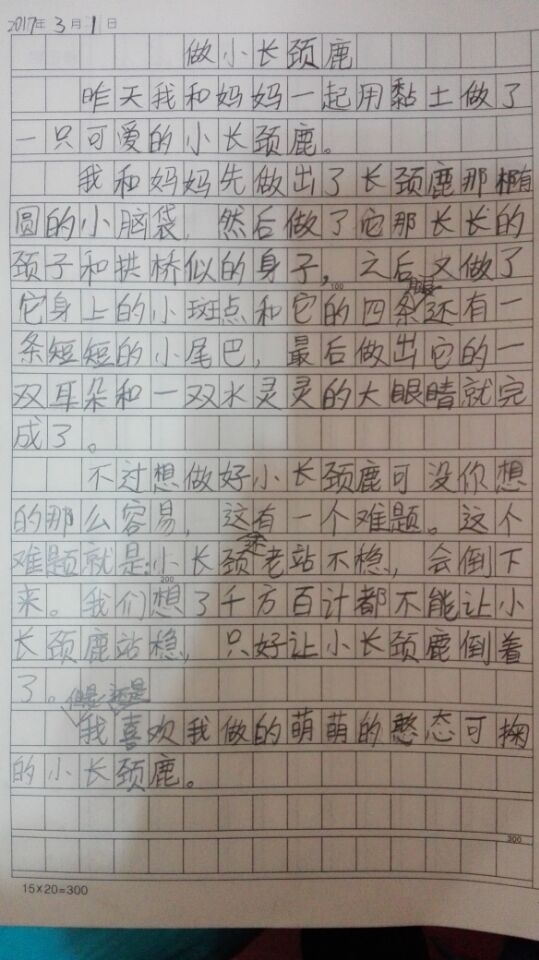 2017年3月1日
做小长颈鹿
昨天我和妈妈一起用黏土做了
一只可爱的小长颈鹿。
我和妈妈先做出了长颈鹿那椭
圆的小脑袋,然后做了它那长长的
颈子和拱桥似的身子,之后又做了
它身上的小斑点和它的四条腿还有一
条短短的小尾巴,最后做出它的一
双耳朵和一双水灵灵的大眼睛就完
成了。
不过想做好小长颈鹿可没你想
的那么容易,这有一个难题。这个
难题就是:小长颈老站不稳,会倒下
来。我们想了千方百计都不能让小
长颈鹿站稳,只好让小长颈鹿倒着
了。
但是我还是喜欢我做的萌萌的憨态可掬
的小长颈鹿。
100
200
300
15×20=300